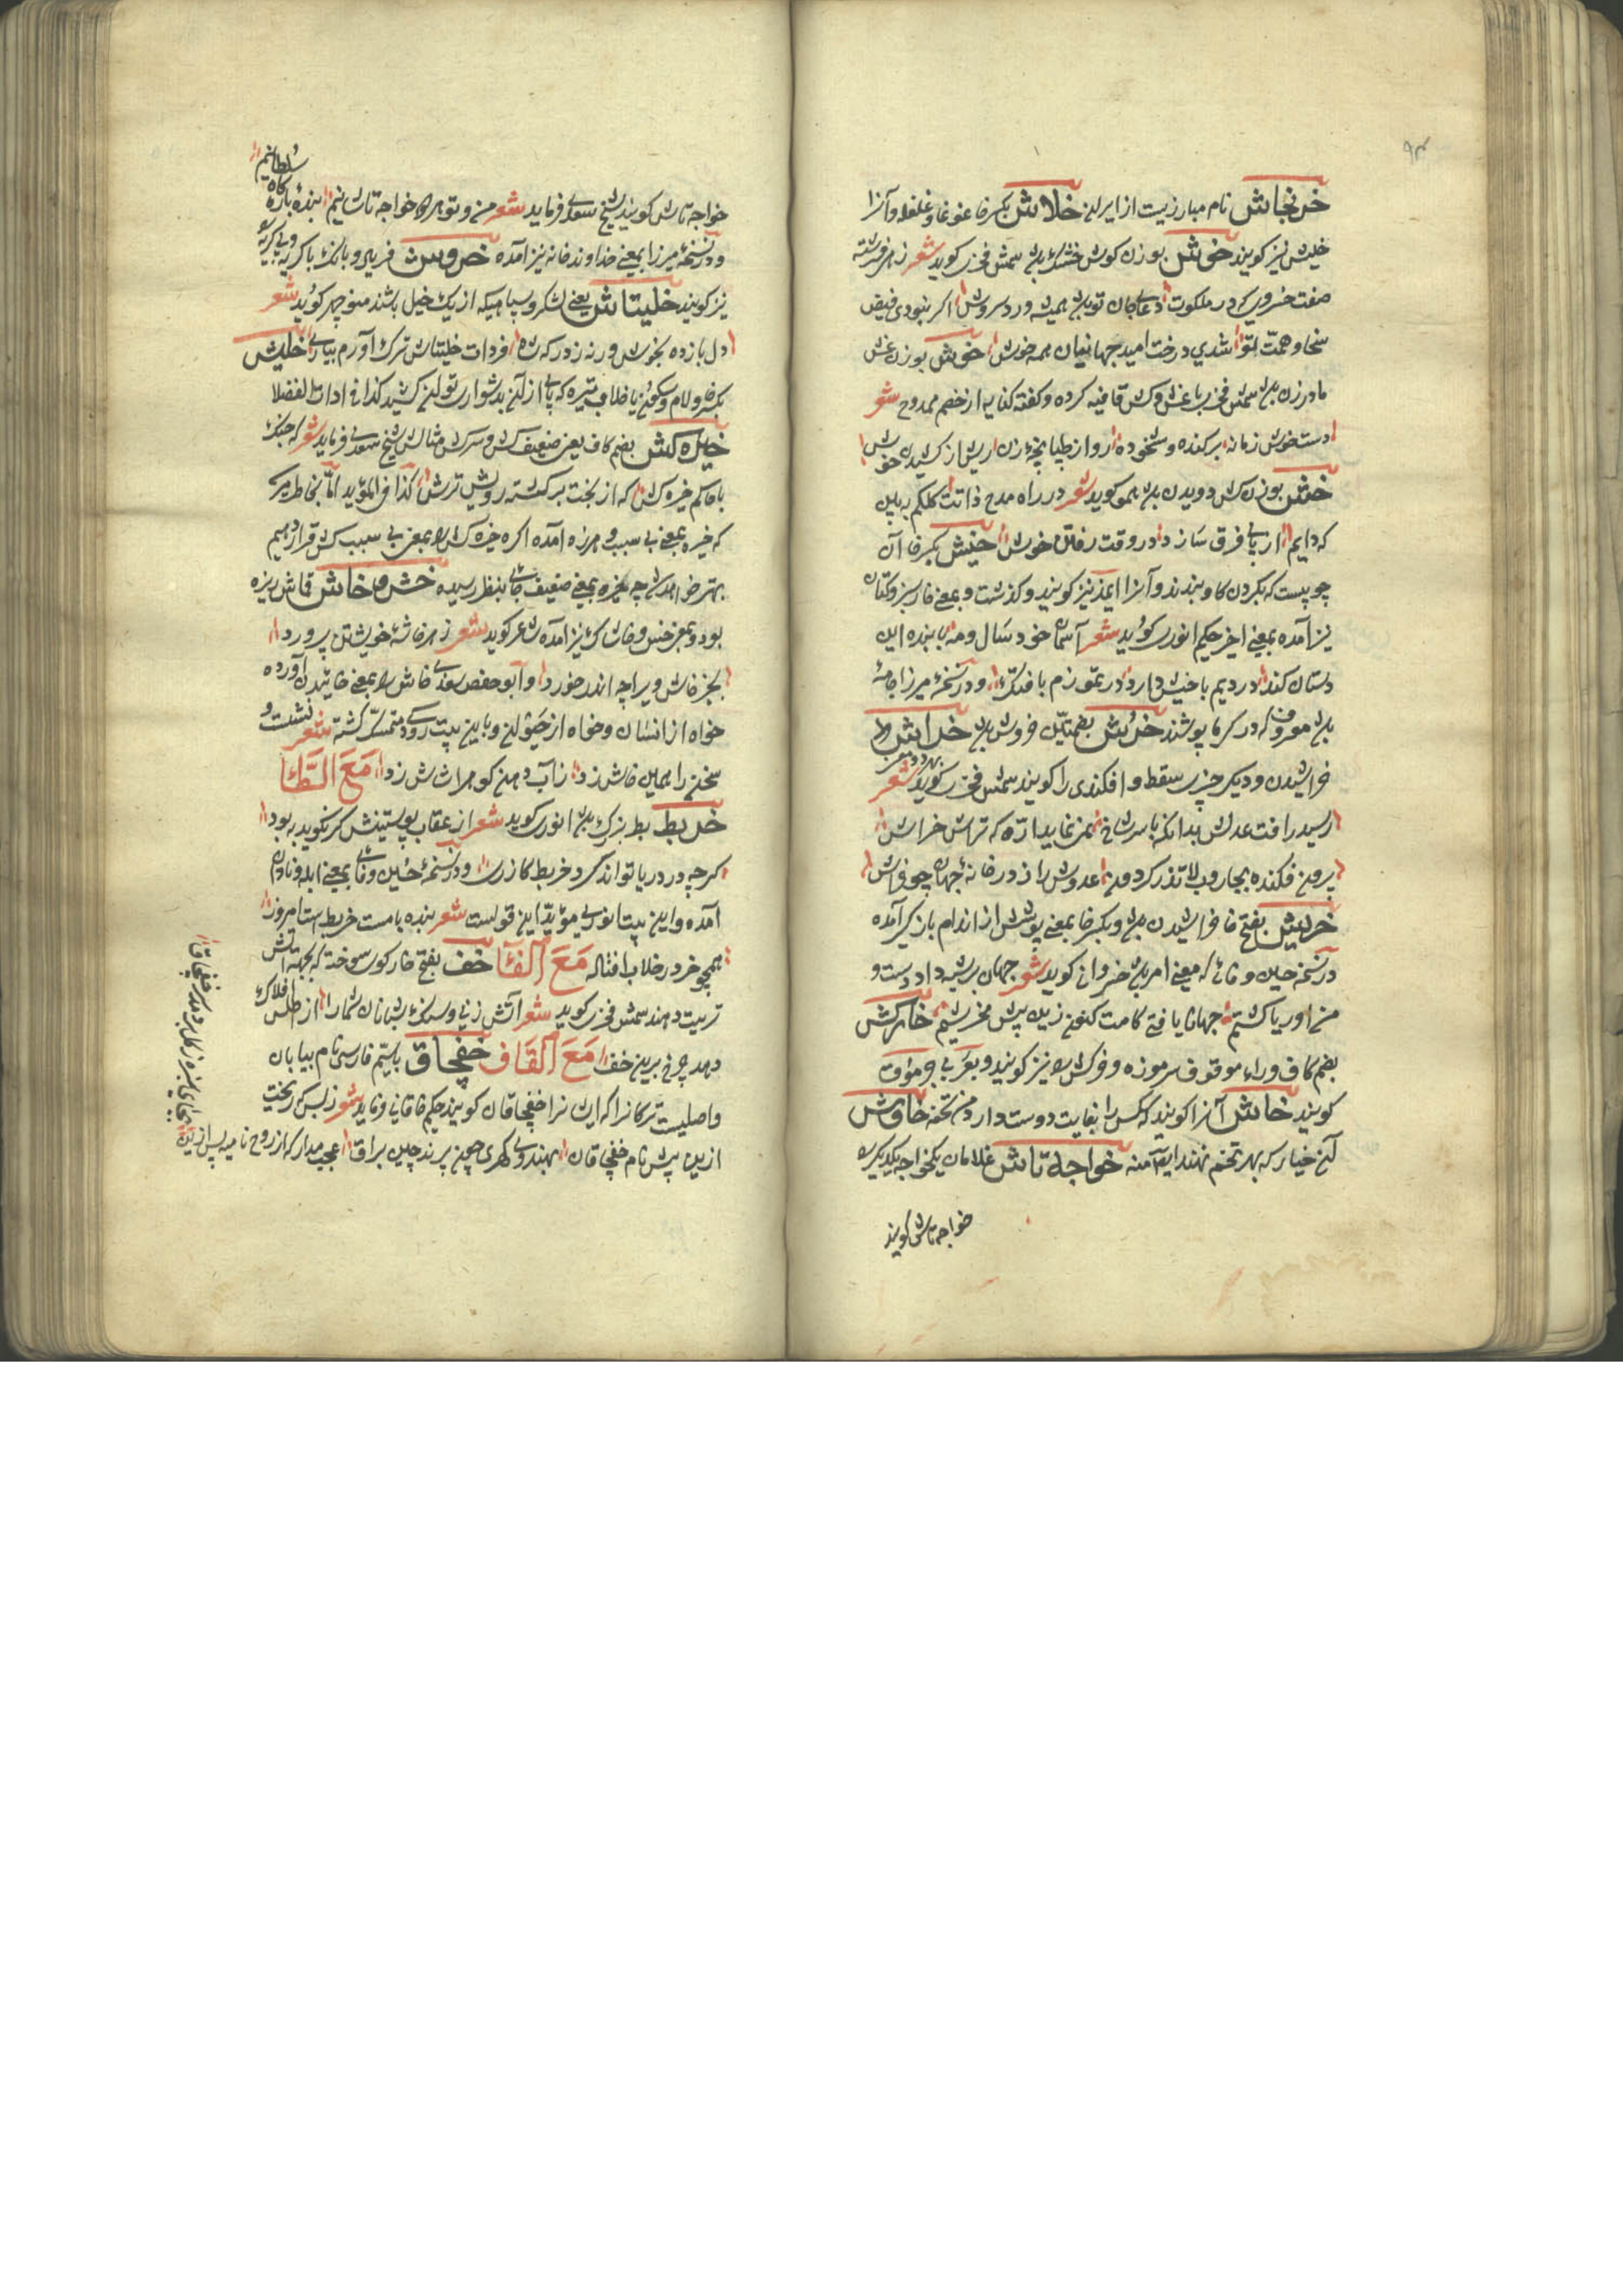 ۹۴
خرنجاش نام مبارزیست از ایران خلاش بکسر خا غوغا و غلغله و آنرا
خلیش نیز کویند خوش بوزن کوش خشک باشد شمس فخری کوید شعر زهی فرشته
صفت خسروی که در ملکوت دعای جان تو باشد همیشه ورد سروش اکر نبودی فیض
سخا و همت تو شدی درخت امید جهانیان همه خوش خوش بوزن غش
مادر زن باشد شمس فخری با غش و کش قافیه کرده و کفته کنایه از خصم ممدوح شعر
دستخوش زمانه برکنده و شخوده روا از طپانچه زن ریش از کشیدن خوش
خش بوزن کش دویدن باشد همو کوید شعر در راه مدح ذاتت کلکم به بین
که دایم از پای فرق سازد در وقت رفتن خوش خنیش بکسر خا آن
چوبیست که بکردن کاو بندند و آنرا ایمذ نیز کویند و کذشت و بمعنی خار سبز و کتان
نیز آمده بمعنی اخیر حکیم انوری کوید شعر آسمان خود سال و مه با بنده این
دستان کند در دیم با خیش دارد در تموزم با فنک و در نسخه میرزا جامه
باشد معروف که در کرما پوشند خرش بضمتین خروش باشد خراش
خراشیدن و دیکر چیزی سقط و افکندی را کویند بهر دو معنی شمس فخری کوید شعر
رسید رافت عدلش بدانکه با سر شاخ نمی نماید اره که تراش خراش
برون فکنده بجاروب لا تذر کردون عدوش را ز در خانه جهان چو خراش
خریش بفتح خا خراشیدن باشد و بکسر خا بمعنی پوشش از اندام باز کن آمده
در نسخه حلیمی و فائی که معنی امر باشد خسروانی کوید شعر جهان بر شبه داود است و
من اوریا کشتم جهانا یافتی کامت کنون زین بیش مخریشم خارکش
بضم کاف و راء موقوف سرموزه و خرکش نیز کویند و بعربی جرموق
کویند خاش آنرا کویند که کسی را بغایت دوست دارد من تحفه خاوش
آن خیار که بهر تخم نهند ایضا منه خواجه تاش غلامان یکخواجه یکدیکر را
خواجه تاش کویند
خواجه تاش کویند شیخ سعدی فرماید شعر من و تو هر دو خواجه تاشانیم بنده بارکاه سلطانیم
و در نسخه میرزا بمعنی خداوند خانه نیز آمده خروش فریاد و بانک با کریه و بی کریه
نیز کویند خلیتاش یعنی لشکر و سپاهیکه از یک خیل باشند منوچهر کوید شعر
دل بازده بخوش ورنه ز درکه شه فردات خیلتاش ترک آورم بیاری خلیش
بکسر خا و لام و سکون یا خلاب تیره که پای از آن بدشواری توان کشید کذا فی ادات الفضلا
خیره کش بضم کاف یعنی ضعیف کش و سرکش مثالش شیخ سعدی فرماید شعر که جنک
با حاکم خیره کش که از بخت برکشته رویش ترش کذا فی المؤید اما بخاطر میرسد
که خیره بمعنی بی سبب و هرزه آمده اکر خیره کش را بمعنی بی سبب کش قرار دهیم
بهتر خواهد بود چه خیره بمعنی ضعیف جائی بنظر رسیده خش و خاش قماش ریزه
بود و بمعنی خس و خاشاک نیز آمده شاعر کوید شعر ز هر خاشه خویشتن پرورد
بجز خاش ویرا چه اندر خورد و ابو حفص سعدی خاش را بمعنی خائیدن آورده
خواه از انسان و خواه از حیوان و باین بیت رودکی متمسک کشته شعر نشست و
سخن را همین خاش زد ز آب دهن کوه را شاش زد مع الطا
خربط بط بزرک باشد انوری کوید شعر از عقاب پوستینش کر نکوید به بود
کرچه در دریا تواند کرد خربط کازری و در نسخه حسین وفائی بمعنی ابله و نادان
آمده و این بیت انوری مؤید این قولست شعر بنده بامست خربط است امروز
همچو خر در خلاب افتاله مع الفا خف بفتح خا رکوی سوخته که بجهه آتش
ترتیب دهند شمس فخری کوید شعر آتش زنی و سنک شبانان شما را از اطلس افلاک
دهد چرخ برین خف مع القاف خفچاق با جیم فارسی نام بیابان
و اصلیست ترکانرا که ایشانرا خفچاقان کویند حکیم خاقانی فرماید شعر ز بس که ریخت
ازین پیش نام خفچاقان بهندوی کهری همچو پرند چین براق عجب مدار که از روح نامیه پس ازین
بجای سبزه ز کل بردمد سر خفچاق